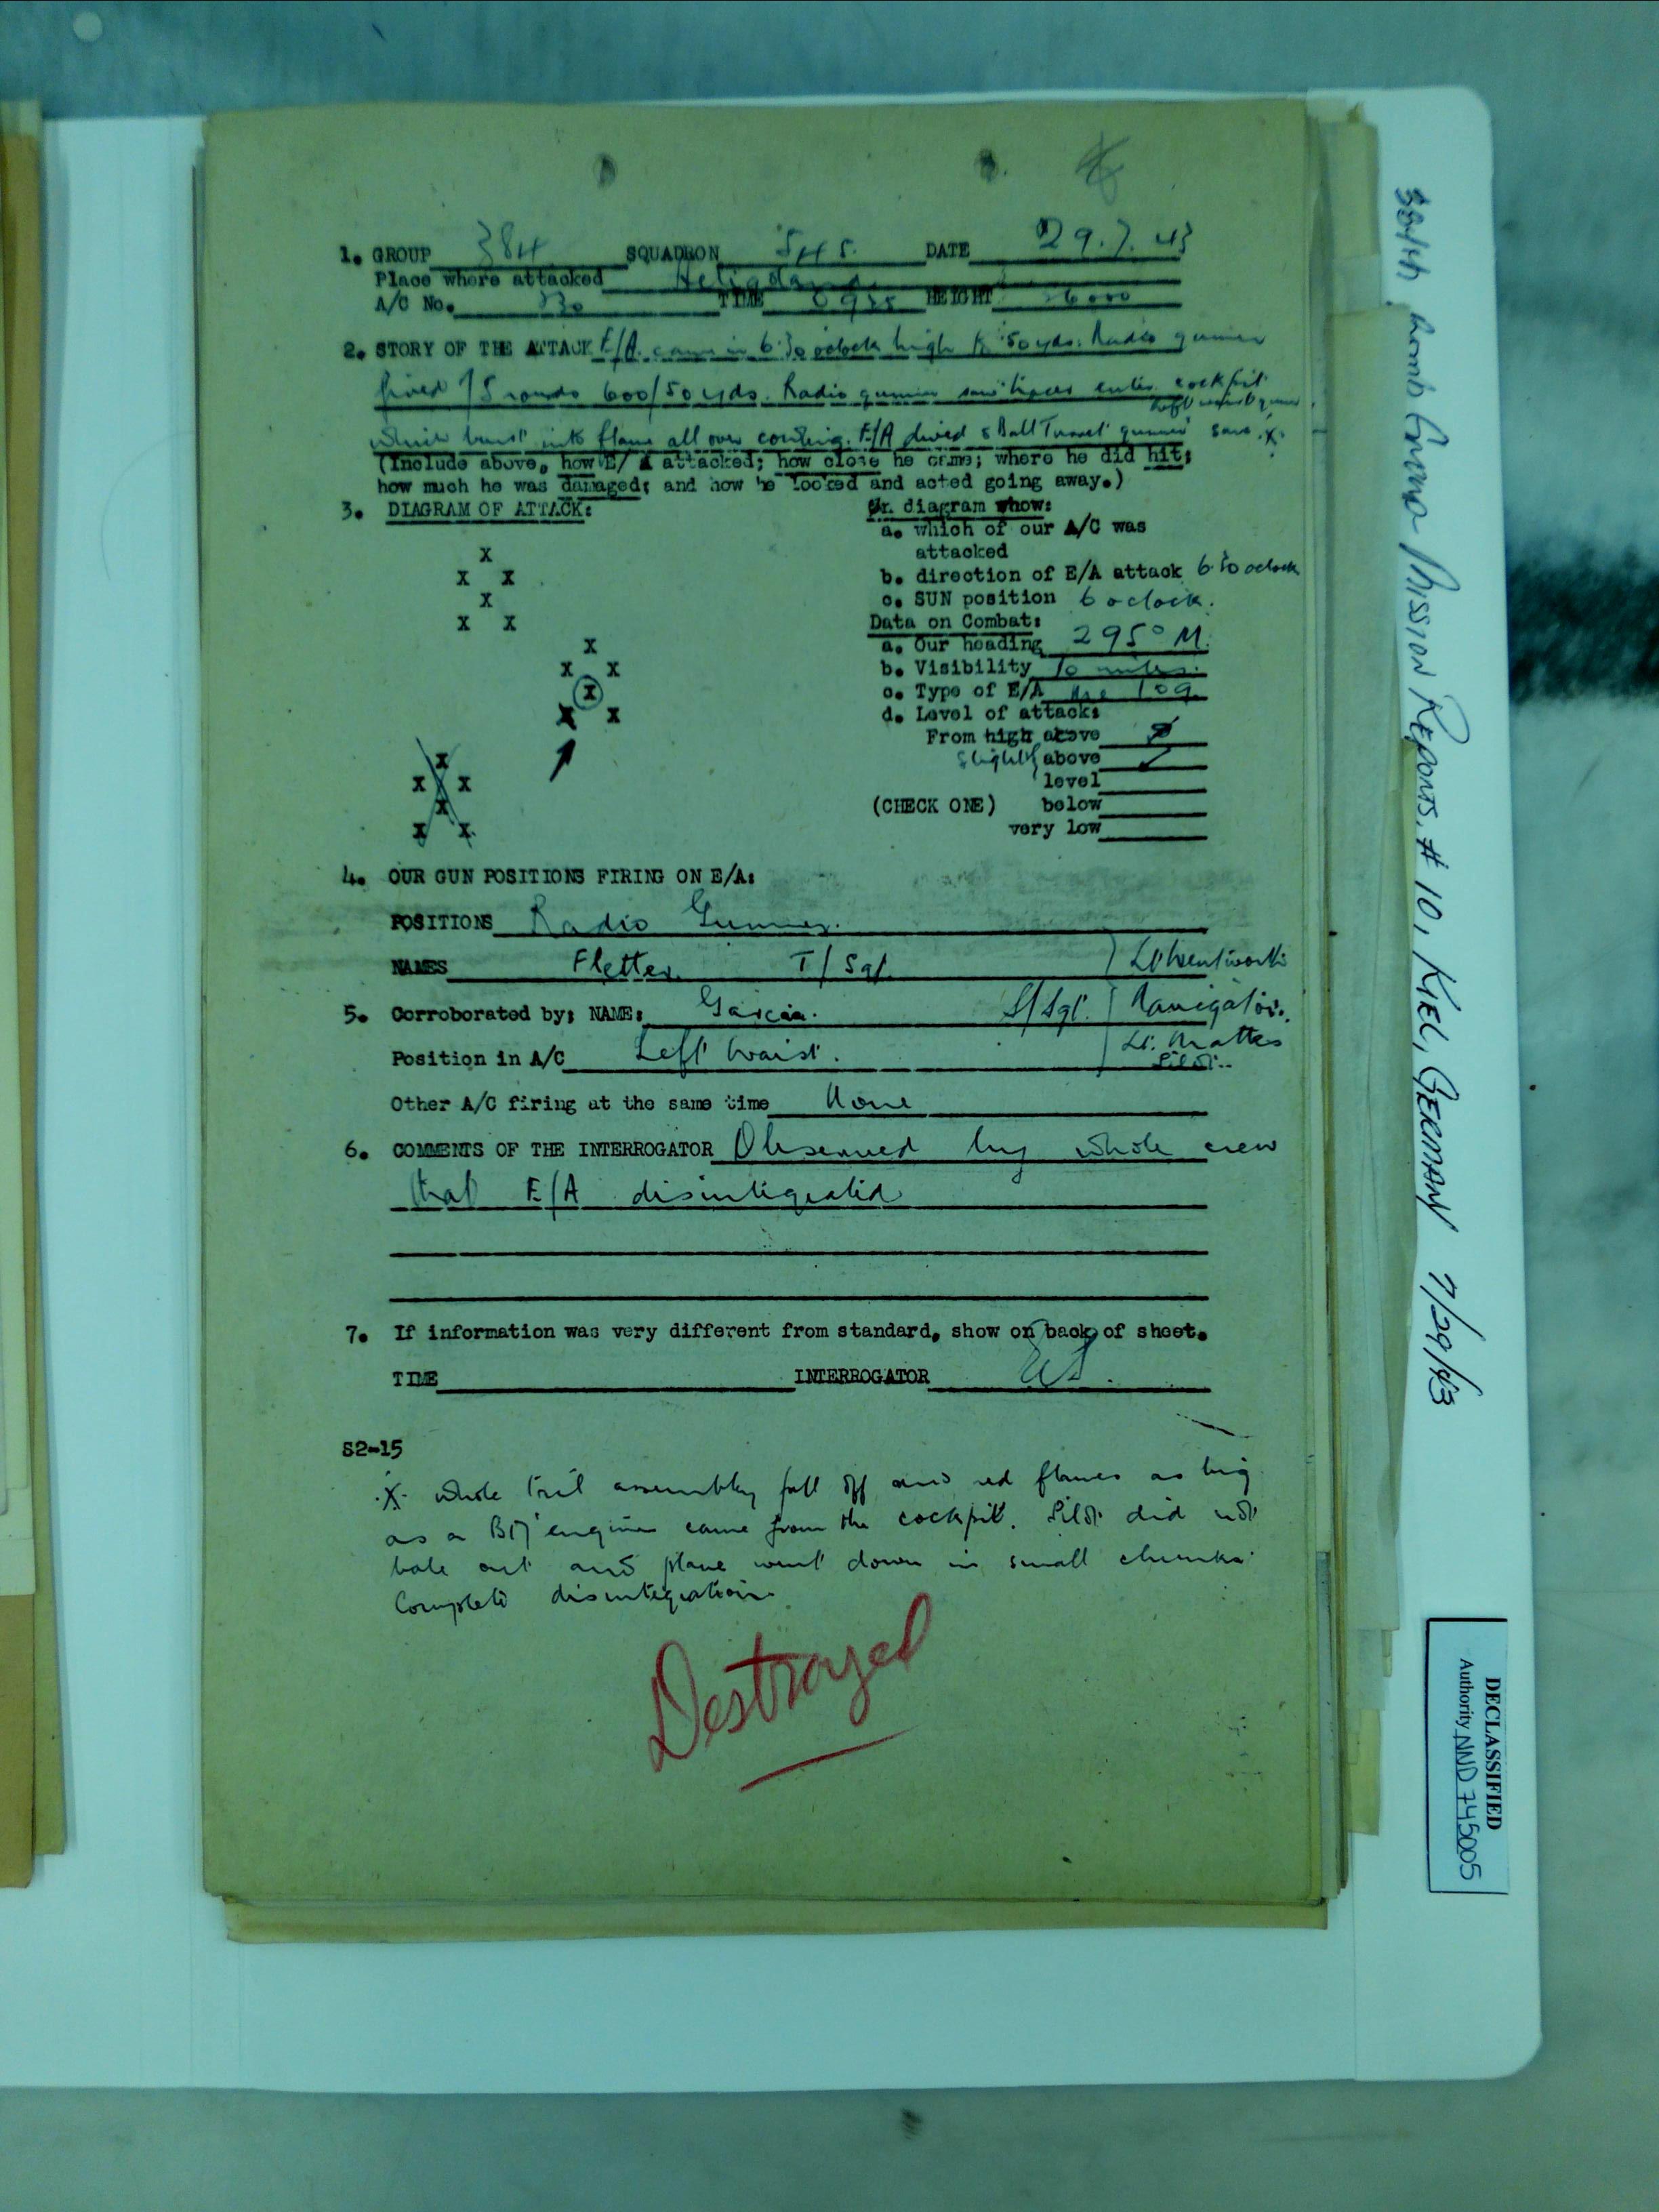 1. GROUP 384 SQUADRON 545. DATE 29.7.43
Place where attacked
A/C No. TIME HEIGHT 26000
2. STORY OF THE ATTACK E/A. came in 6.30 oclock high to 50 yds. Radio gunner
fired 75 rounds 600/50 yds. Radio gunner saw traces enter cockpit
left waist gunner
which burst into flame all over cowling. E/A dived & Ball Turret gunner saw .X.
(Include above, how E/A attacked; how close he came; where he did hit;
how much he was damaged; and how he looked and acted going away.)
3. DIAGRAM OF ATTACK:
On diagram show:
a. which of our A/C was
attacked
b. direction of E/A attack 6.30 oclock
c. SUN position 6 oclock.
Data on Combat:
a. Our heading 295° M.
b. Visibility 10 miles.
c. Type of E/A Me 109
d. Level of attack:
From high above
slightly above ✓
level
(CHECK ONE) below
very low
X
X X
X
X X
X
X X
X
X X
X
X X
X
X X
4. OUR GUN POSITIONS FIRING ON E/A:
POSITIONS Radio Gunner.
NAMES Fletter. T/Sgt. Lt Wentworth
5. Corroborated by; NAME: Garcia. S/Sgt. Navigator.
Position in A/C Left Waist. Lt. Mattes
Pilot.
Other A/C firing at the same time None
6. COMMENTS OF THE INTERROGATOR Observed by whole crew
that E/A disintegrated
7. If information was very different from standard, show on back of sheet.
TIME INTERROGATOR
S2-15
.X. whole tail assembly fell off and red flames as big
as a B17 engine came from the cockpit. Pilot did not
bale out and plane went down in small chunks
Complete disintegration.
Destroyed
384th Bomb Group Mission Reports. # 10, KIEL, GERMANY 7/29/43
DECLASSIFIED
Authority NND 745005